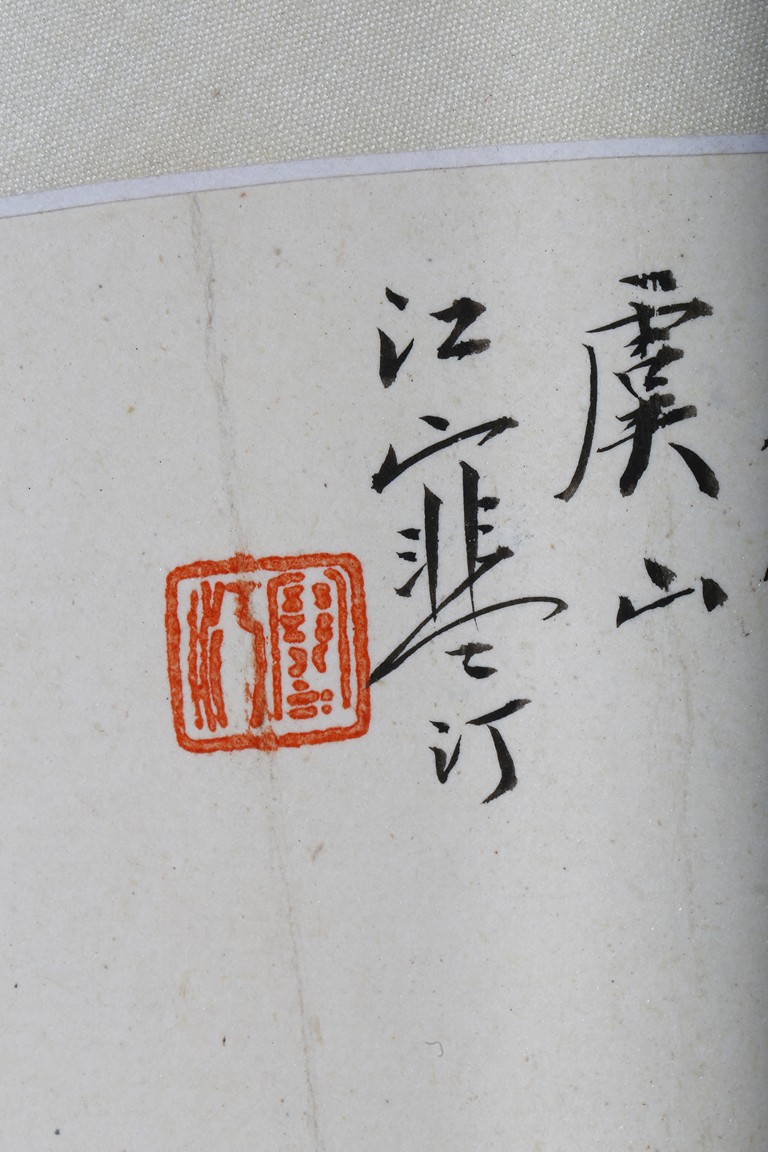 虞山
江寒汀